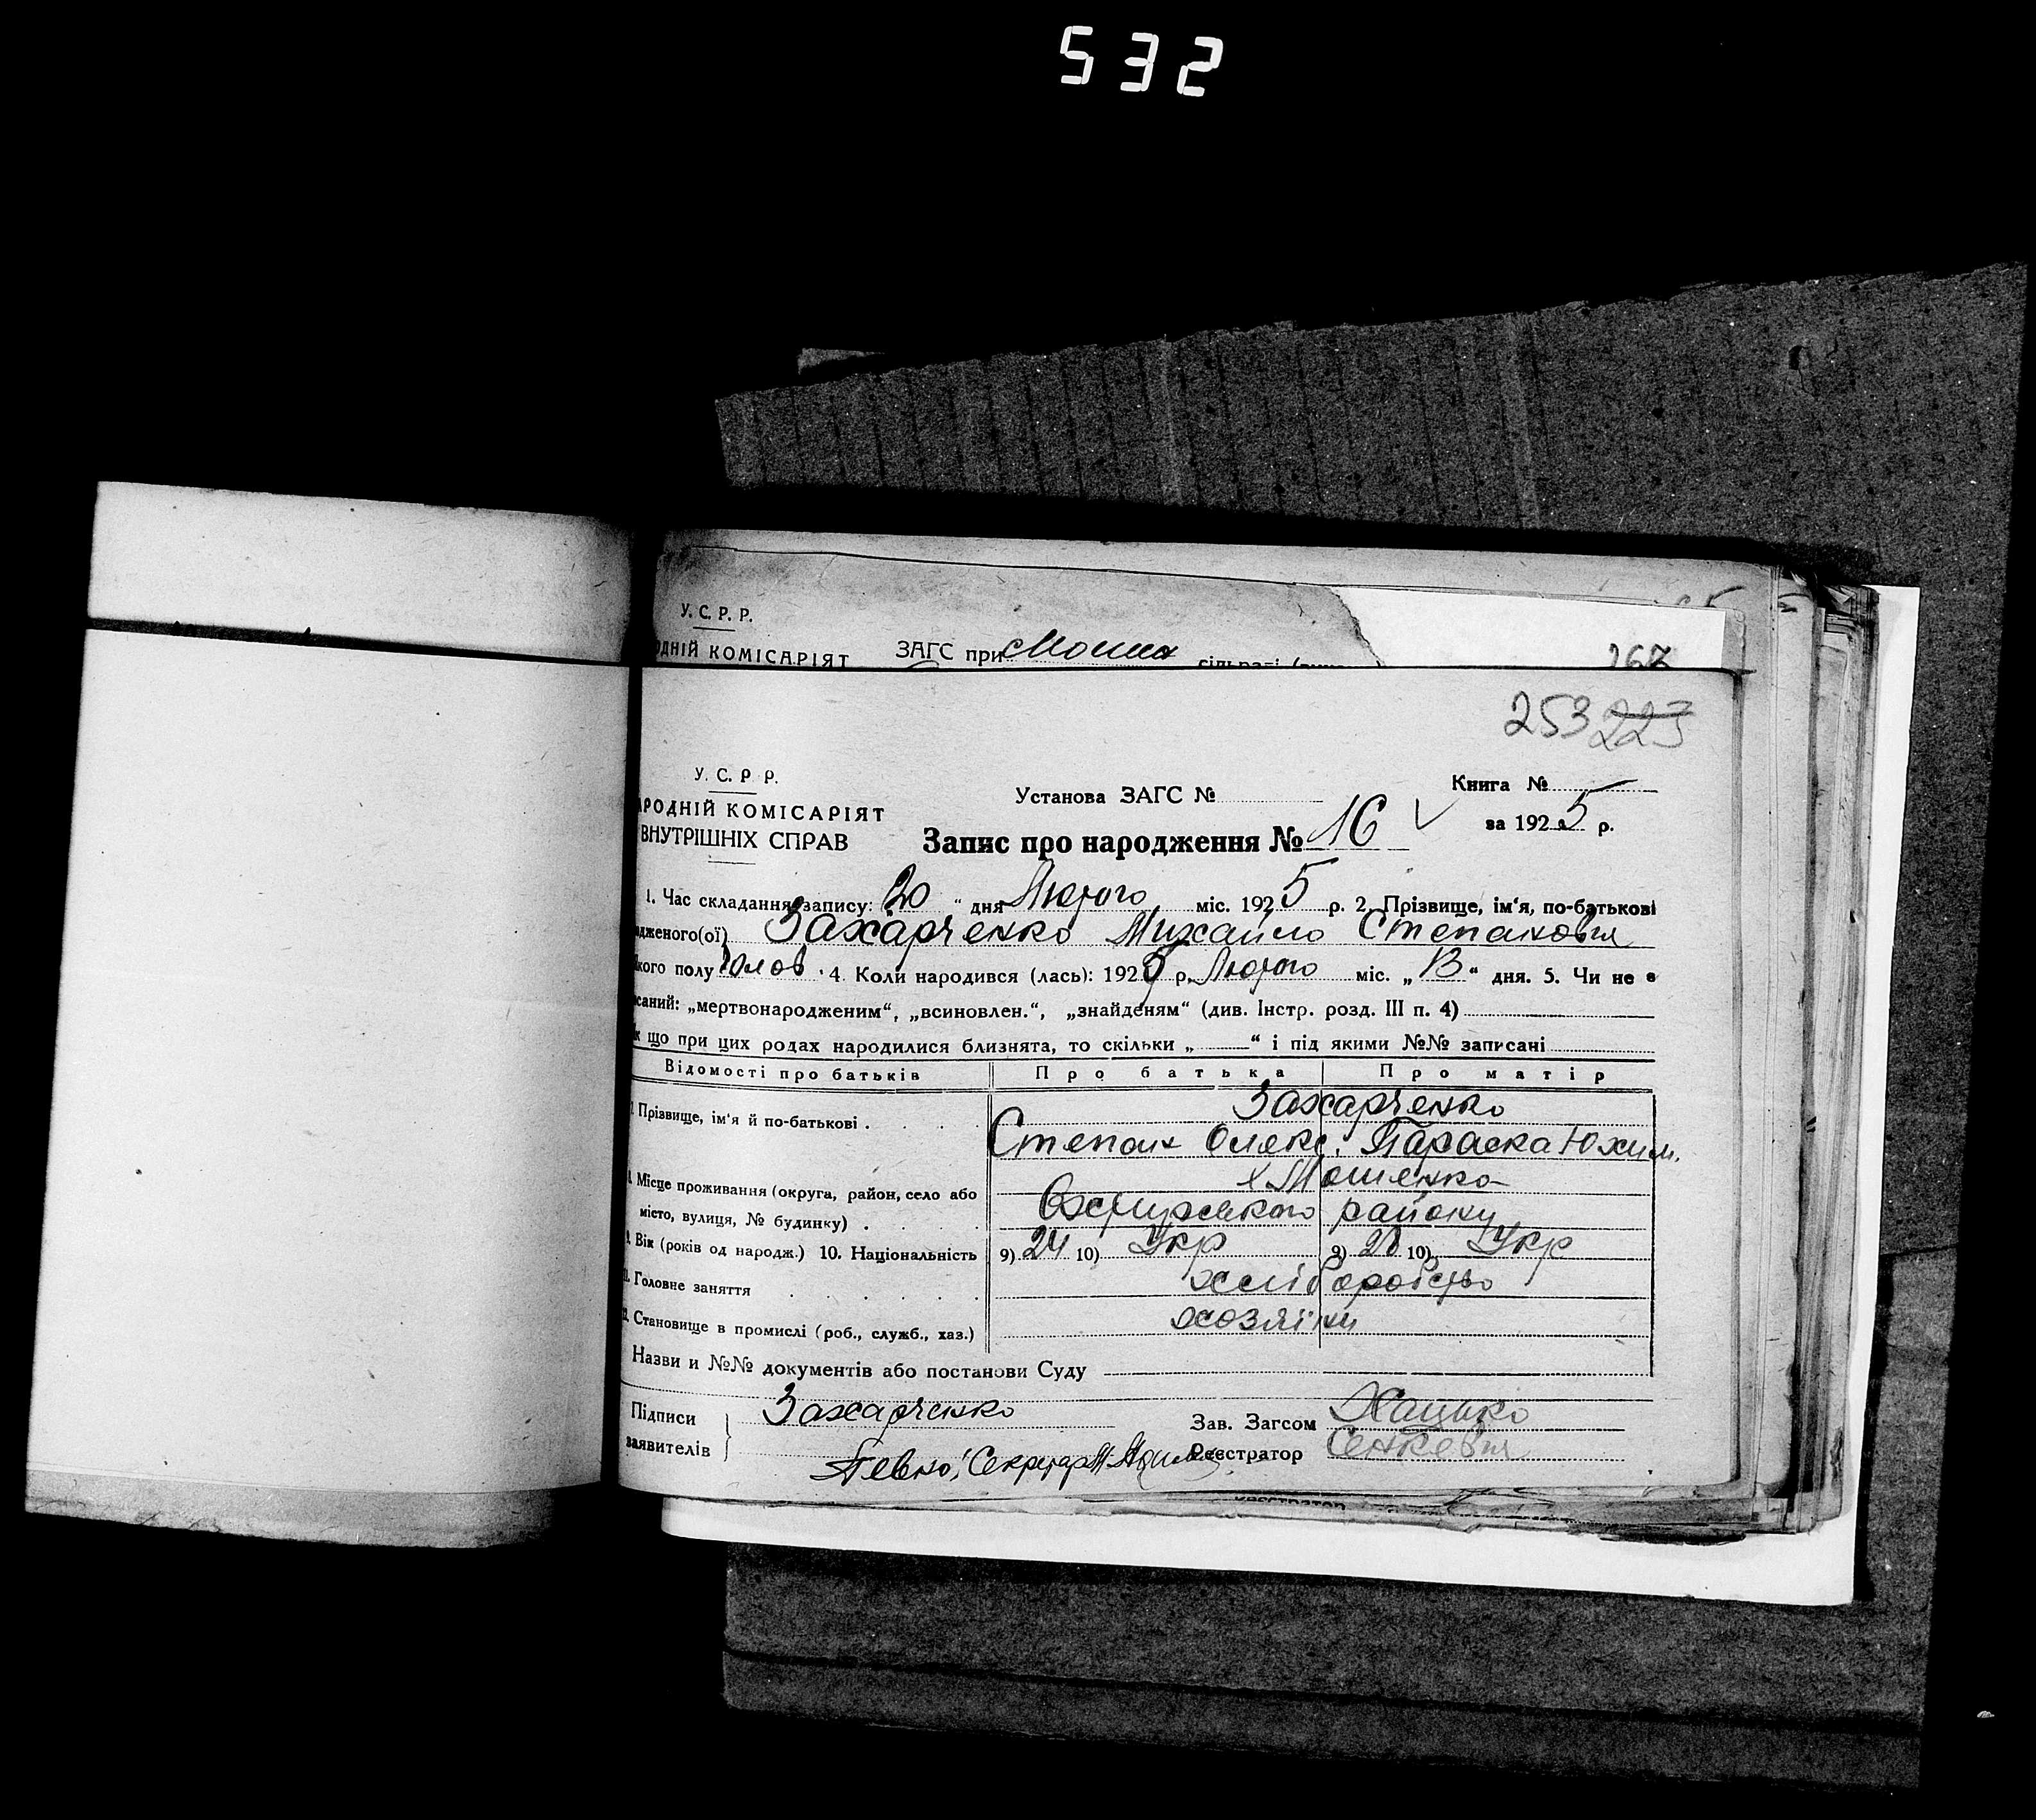 532
У. С. Р. Р.
ОДНІЙ КОМІСАРІЯТ ЗАГС при
267
253 223
У. С. Р Р.
АРОДНІЙ КОМІСАРІЯТ
ВНУТРІШНІХ СПРАВ
Установа ЗАГС №
Книга №
за 1925 р.
Запис про народження № 16
1. Час складання запису: 20 " дня Лютого міс. 1925 р. 2. Прізвище, ім'я, по-батькові
одженого(ої) Захарченко Михайло Степанович
кого полу Чолов. 4. Коли народився (лась): 192 р. Лютого міс. „ 13 " дня. 5. Чи не є
исаний: „мертвонародженим", „всиновлен.", „знайденям" (див. Інстр. розд. III п. 4)
к що при цих родах народилися близнята, то скільки „ — " і під якими №№ записані
Відомості про батьків Про батька Про матір
7. Прізвище, ім'я й по-батькові . . . . Захарченко
Степан Олекс. Параска Юхим.
8. Місце проживання (округа, район, село або х. Мошенко
місто, вулиця, № будинку) . . . . Охтирського району
9. Вік (років од народж.) 10. Національність 9) 24 10) Укр 9) 28 10) Укр
11. Головне заняття . . . . . . хліборобство
12. Становище в промислі (роб., служб., хаз.) хозяїни
Назви и №№ документів або постанови Суду
Підписи Захарченко Зав. Загсом
заявителів Реєстратор Сенкевич
Певно: Секретар